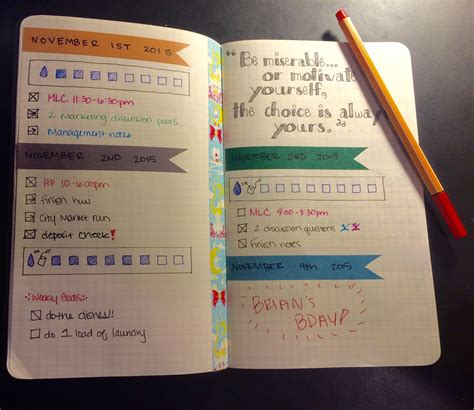 NOVEMBER 1ST 2015
MLC 11:30-6:30pm
2 Marketing discussion posts
Management notes
NOVEMBER 2ND 2015
HP 10-6:00pm
finish hw
City Market run
deposit check!
Weekly Goals:
do the dishes!!
do 1 load of laundry
"Be miserable...
or motivate
yourself,
the choice is always
yours."
NOVEMBER 3RD 2015
MLC 4:00-8:30pm
2 discussion questions
finish notes
NOVEMBER 4th 2015
BRIAN'S
BDAY!